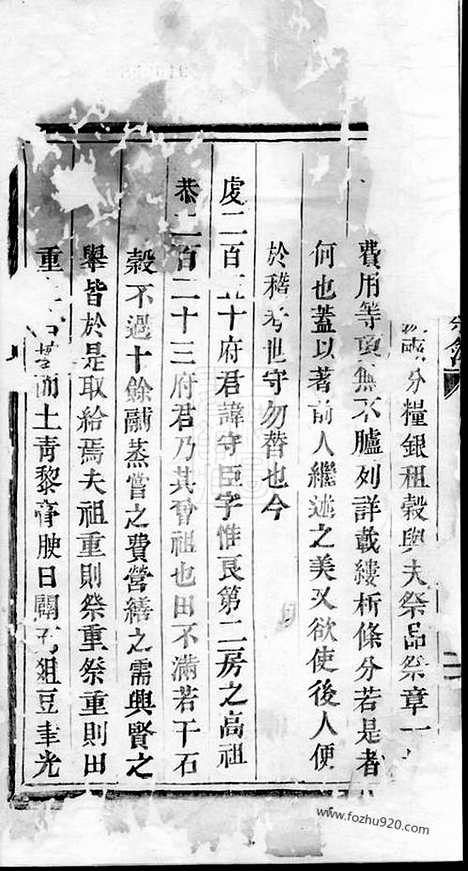 分糧銀租穀與夫祭品祭章一
費用等項無不臚列詳載縷析條分若是者
何也蓋以著前人繼述之美又欲使後人便
於稽考世守勿替也今
虔二百五十府君諱守臣字惟良第二房之高祖
恭二百二十三府君乃其曾祖也田不滿若干石
穀不過十餘鬴蒸嘗之費營繕之需興賢之
舉皆於是取給焉夫祖重則祭重祭重則田
重而土青黎膏腴日闢俎豆聿光
www.fozhu920.com